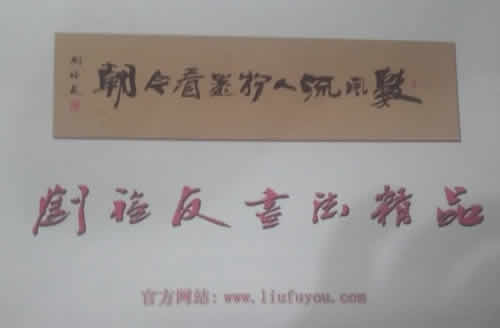 數風流人物還看今朝
劉福友
劉福友書法精品
官方网站: www.liufuyou.com